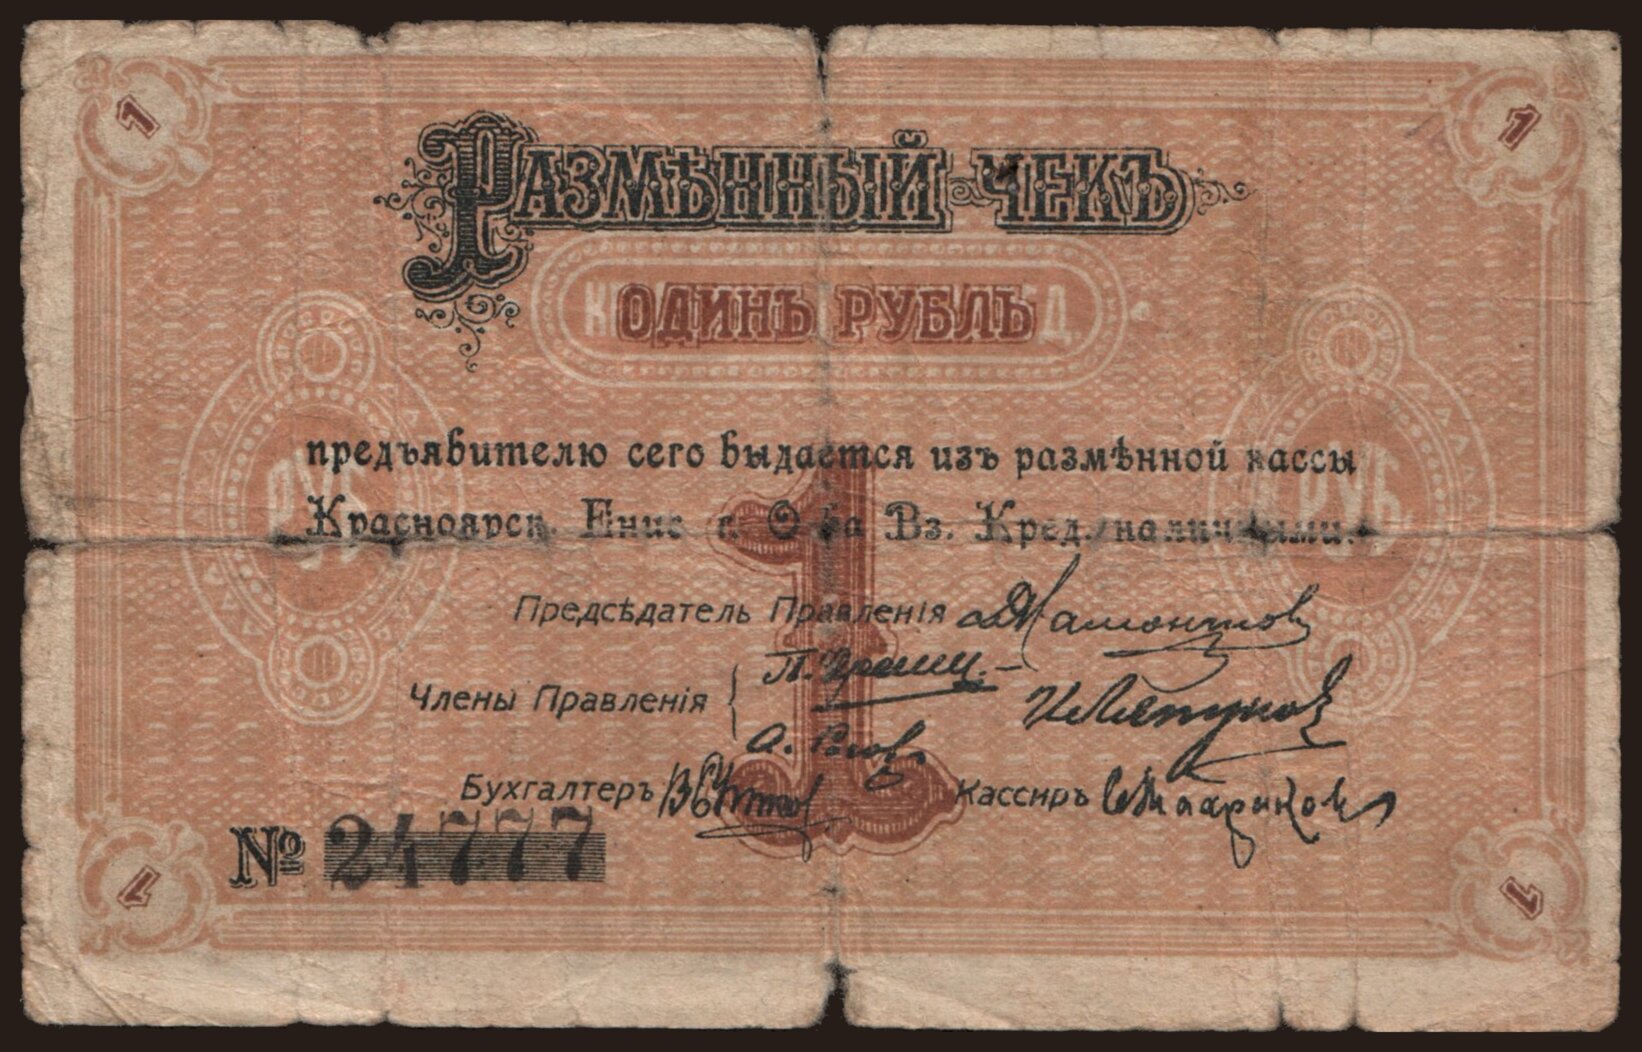 1 1
Размѣнный чекъ
ОДИНЪ РУБЛЬ
предъявителю сего выдается изъ размѣнной кассы
РУБ. 1 РУБ.
Красноярск. Енис г. О-ва Вз. Кред. наличными.
Предсѣдатель Правленія
Члены Правленія
П.
А.
Бухгалтеръ Кассиръ
№ 24777
1 1